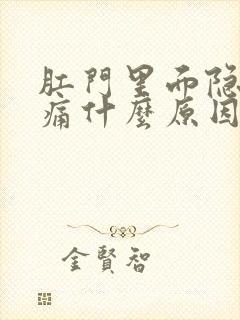 肛門里而隐
痛什麼原因
金賢智